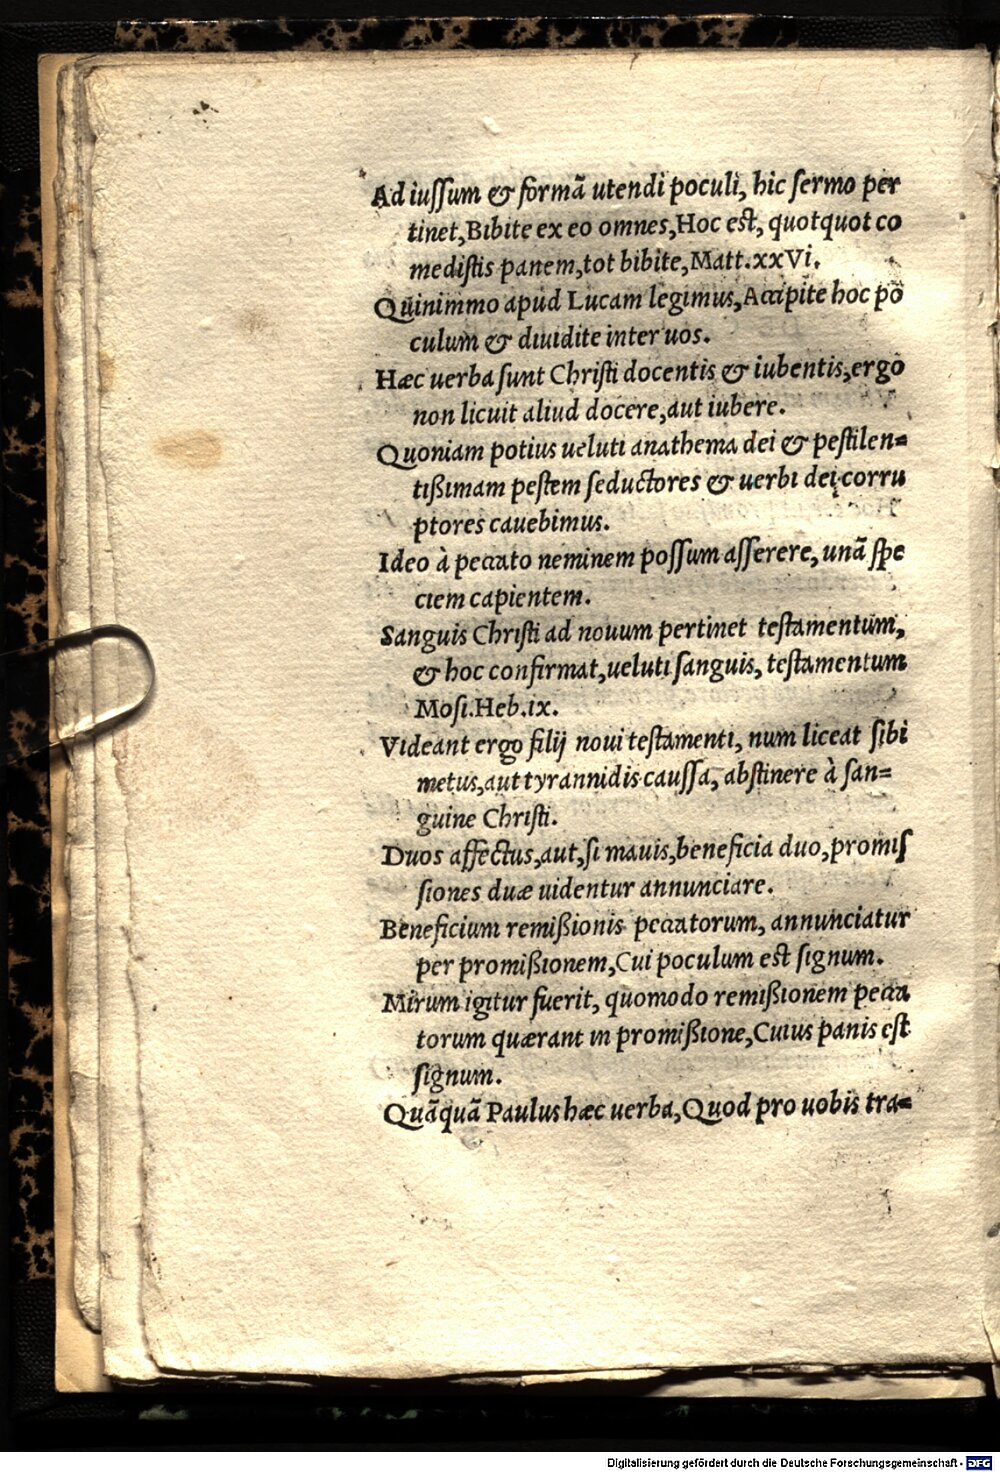 Ad iuſſum & formā utendi poculi, hic ſermo per
tinet, Bibite ex eo omnes, Hoc est, quotquot co
mediſtis panem, tot bibite, Matt. xxVi.
Quinimmo apud Lucam legimus, Accipite hoc po
culum & diuidite inter uos.
Hæc uerba ſunt Chriſti docentis & iubentis, ergo
non licuit aliud docere, aut iubere.
Quoniam potius ueluti anathema dei & peſtilen=
tißimam peſtem ſeductores & uerbi dei corru
ptores cauebimus.
Ideo à peccato neminem poſſum aſſerere, unā ſpe
ciem capientem.
Sanguis Chriſti ad nouum pertinet teſtamentum,
& hoc confirmat, ueluti ſanguis, teſtamentum
Moſi. Heb. ix.
Videant ergo filij noui teſtamenti, num liceat ſibi
metus, aut tyrannidis cauſſa, abſtinere à ſan=
guine Chriſti.
Duos affectus, aut, ſi mauis, beneficia duo, promiſ
ſiones duæ uidentur annunciare.
Beneficium remißionis peccatorum, annunciatur
per promißionem, Cui poculum est ſignum.
Mirum igitur fuerit, quomodo remißionem pecca
torum quærant in promißione, Cuius panis eſt
ſignum.
Quāquā Paulus hæc uerba, Quod pro uobis tra=
Digitalisierung gefördert durch die Deutsche Forschungsgemeinschaft - DFG